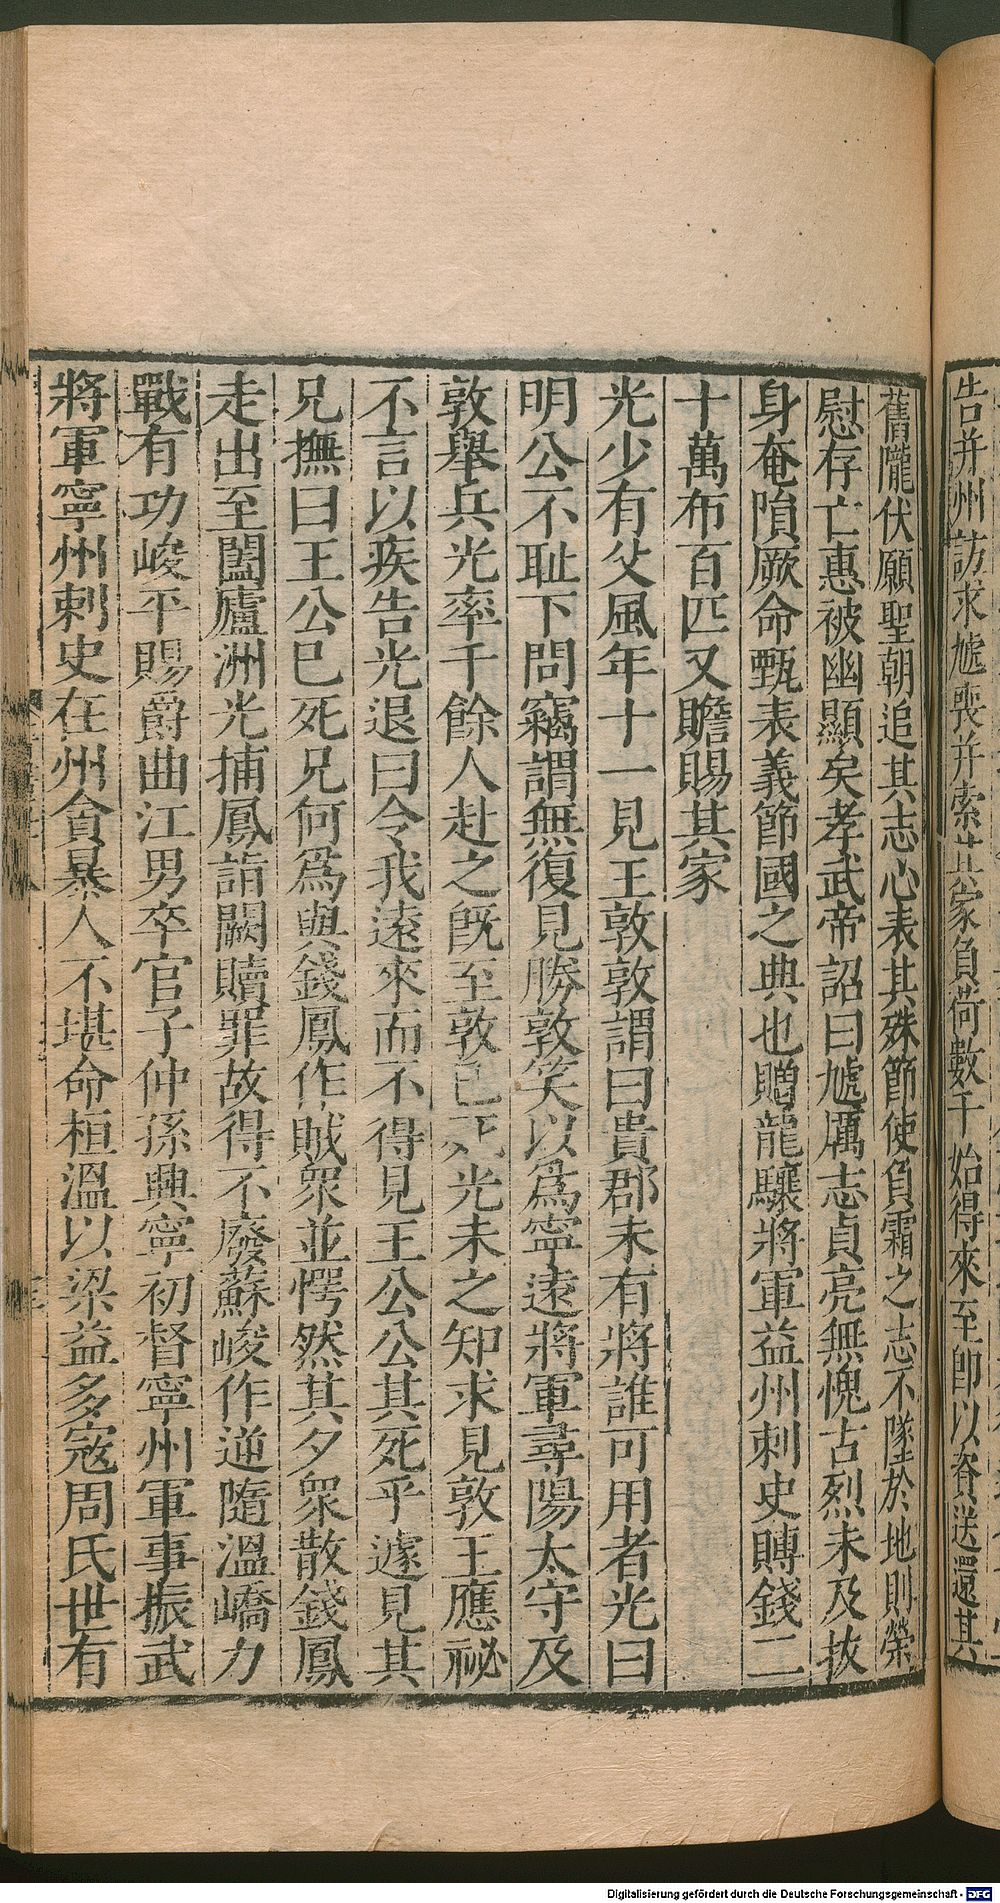 告并州訪求虓喪并索其家負荷數千始得來至即以資送還其
舊隴伏願聖朝追其志心表其殊節使負霜之志不墜於地則榮
慰存亡惠被幽顯矣孝武帝詔曰虓厲志貞亮無愧古烈未及拔
身奄隕厥命甄表義節國之典也贈龍驤將軍益州刺史賻錢二
十萬布百匹又贍賜其家
光少有父風年十一見王敦敦謂曰貴郡未有將誰可用者光曰
明公不恥下問竊謂無復見勝敦笑以為寧遠將軍尋陽太守及
敦舉兵光率千餘人赴之既至敦已死光未之知求見敦王應祕
不言以疾告光退曰今我遠來而不得見王公公其死乎遽見其
兄撫曰王公已死兄何為與錢鳳作賊眾並愕然其夕眾散錢鳳
走出至闔廬洲光捕鳳詣闕贖罪故得不廢蘇峻作逆隨溫嶠力
戰有功峻平賜爵曲江男卒官子仲孫興寧初督寧州軍事振武
將軍寧州刺史在州貪暴人不堪命桓溫以梁益多寇周氏世有
Digitalisierung gefördert durch die Deutsche Forschungsgemeinschaft - DFG